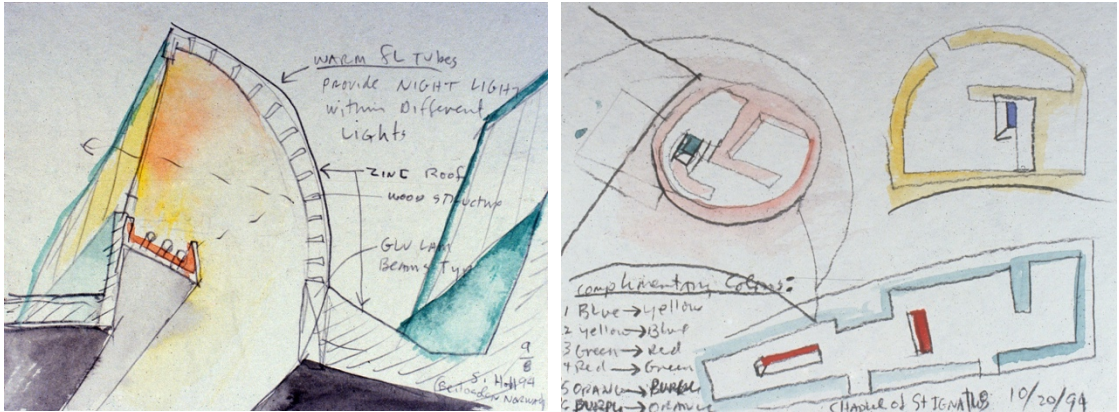 WARM FL TUBES
PROVIDE NIGHT LIGHT
within Different
Lights
ZINC Roof
wood structure
GLU LAM
BEAMS TYP
9/8
S. Holl 94
Norway
complimentary Colors:
1 Blue → Yellow
2 Yellow → Blue
3 Green → Red
4 Red → Green
5 ORANGE → BURPLE
6 BURPLE → ORANGE
CHAPEL of St IGNATIUS 10/20/94